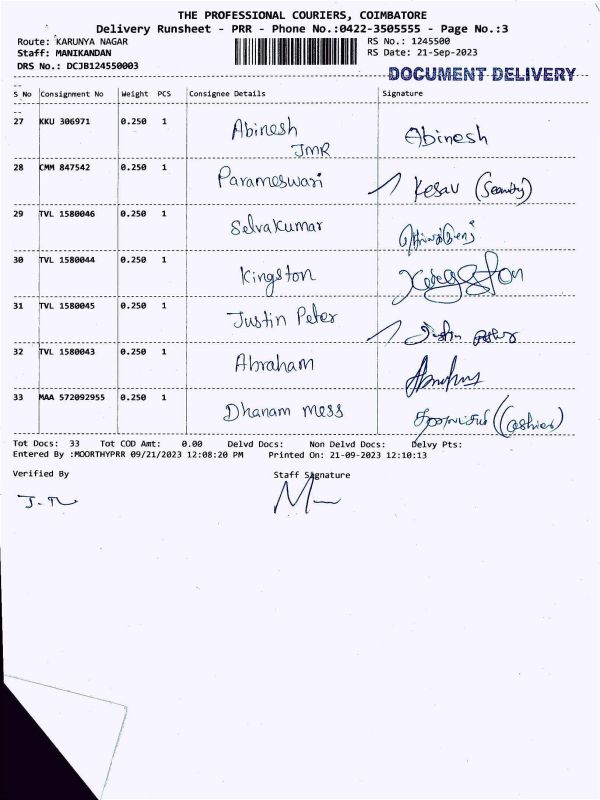 THE PROFESSIONAL COURIERS, COIMBATORE
Delivery Runsheet - PRR - Phone No.:0422-3505555 - Page No.:3
Route: KARUNYA NAGAR RS No.: 1245500
Staff: MANIKANDAN RS Date: 21-Sep-2023
DRS No.: DCJB124550003
DOCUMENT DELIVERY
S No Consignment No Weight PCS Consignee Details Signature
27 KKU 306971 0.250 1 Abinesh Abinesh
JMR
28 CMM 847542 0.250 1 Parameswari Kesav (Security)
29 TVL 1580046 0.250 1 Selvakumar
30 TVL 1580044 0.250 1 Kingston
31 TVL 1580045 0.250 1 Justin Peter Justin Peter
32 TVL 1580043 0.250 1 Abraham
33 MAA 572092955 0.250 1 Dhanam mess (Cashier)
Tot Docs: 33 Tot COD Amt: 0.00 Delvd Docs: Non Delvd Docs: Delvy Pts:
Entered By :MOORTHYPRR 09/21/2023 12:08:20 PM Printed On: 21-09-2023 12:10:13
Verified By Staff Signature